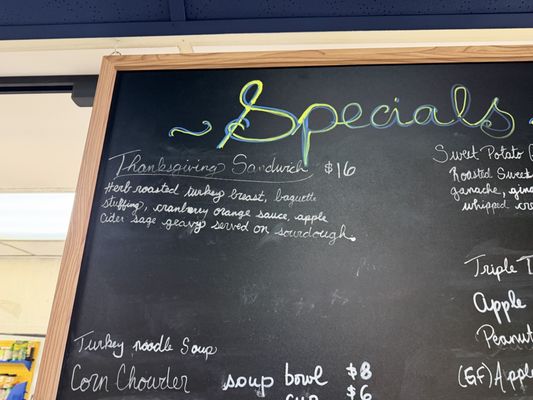 ~ Specials
Thanksgiving Sandwich $16
Herb roasted turkey breast, baguette
stuffing, cranberry orange sauce, apple
cider sage gravy served on sourdough.
Turkey noodle Soup
Corn Chowder
soup bowl $8
cup $6
Sweet Potato
Roasted Sweet
ganache,
whipped
Triple
Apple
Peanut
(GF) Apple